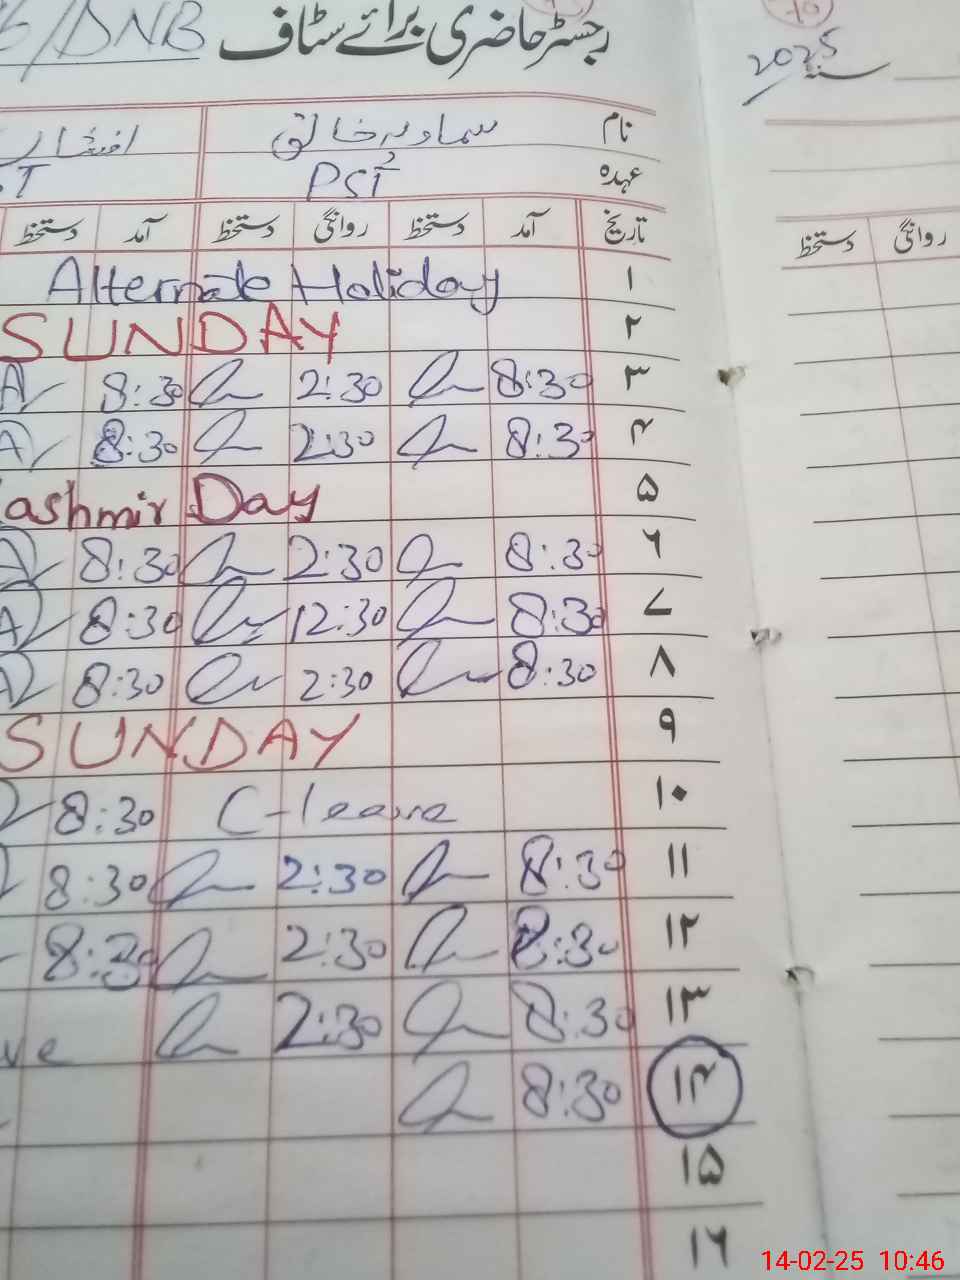 /DNB رجسٹر حاضری برائے سٹاف
2025
نام سماویہ خالق
عہدہ PST
تاریخ آمد دستخط روانگی دستخط آمد دستخط
روانگی دستخط
۱ Alternate Holiday
۲ SUNDAY
۳ 8:30 2:30 8:30
۴ 8:30 2:30 8:30
۵ ashmir Day
۶ 8:30 2:30 8:30
۷ 8:30 12:30 8:30
۸ 8:30 2:30 8:30
۹ SUNDAY
۱۰ C-leave 8:30
۱۱ 8:30 2:30 8:30
۱۲ 8:30 2:30 8:30
۱۳ 8:30 2:30 ve
۱۴ 8:30
۱۵
۱۶
14-02-25 10:46